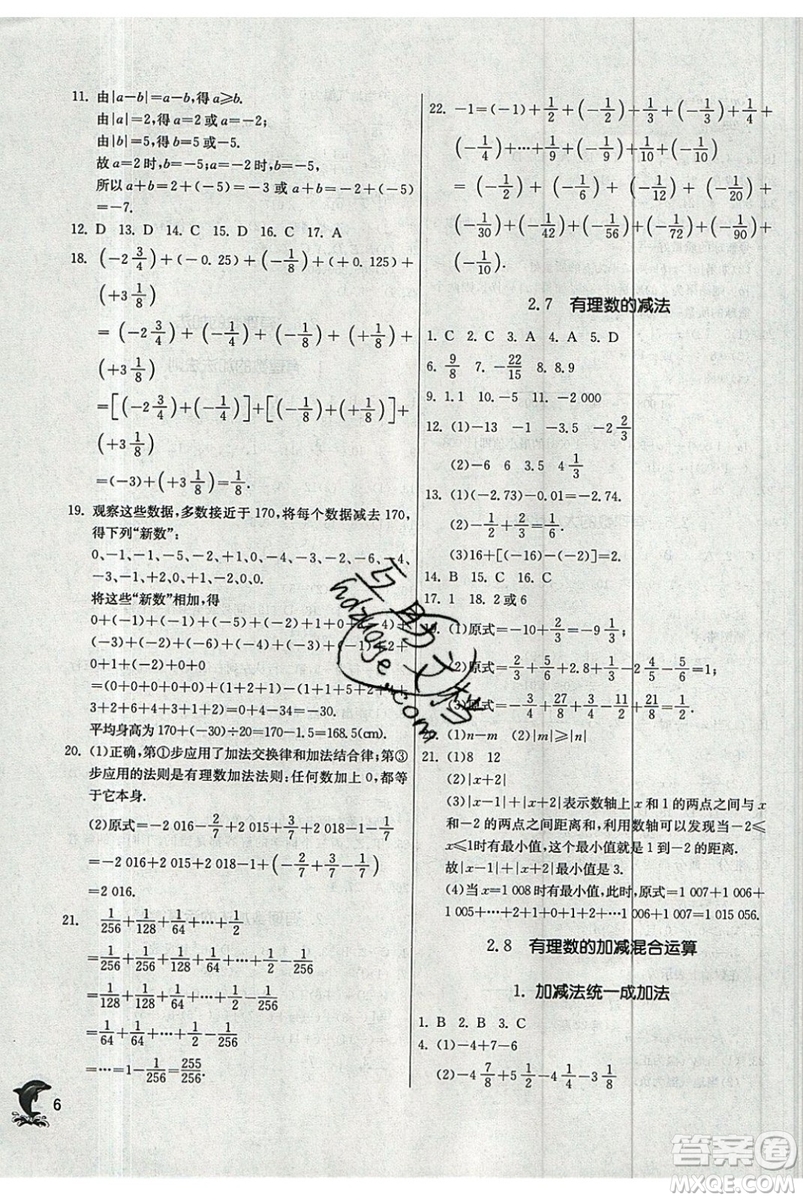 11. 由|a-b|=a-b,得 a≥b.
由|a|=2,得 a=2 或 a=-2;
由|b|=5,得 b=5 或 b=-5.
故 a=2 时,b=-5;a=-2 时,b=-5,
所以 a+b=2+(-5)=-3 或 a+b=-2+(-5)
=-7.
12. D 13. D 14. C 15. C 16. C 17. A
18. (-2 3/4)+(-0.25)+(-1/8)+(+0.125)+
(+3 1/8)
=(-2 3/4)+(-1/4)+(-1/8)+(+1/8)+
(+3 1/8)
=[(-2 3/4)+(-1/4)]+[(-1/8)+(+1/8)]+
(+3 1/8)
=(-3)+(+3 1/8)=1/8.
19. 观察这些数据,多数接近于170,将每个数据减去170,
得下列“新数”:
0,-1,-2,-1,-3,-1,-2,-3,-2,-6,-4,
-3,-2,-4,-1,2,0,1,-1,3.
将这些“新数”相加,得
0+(-1)+(-2)+(-1)+(-3)+(-1)+(-2)+
(-3)+(-2)+(-6)+(-4)+(-3)+(-2)+
(-4)+(-1)+2+0+1+(-1)+3
=(0+0)+(-1-1-1-1-1+1)+(-2-2-2+
1-3+4-3+3)+(-6-4)+(-4)+
平均身高为170+(-30)÷20=170-1.5=168.5(cm).
20. (1)正确,第①步应用了加法交换律和加法结合律:第③
步应用的法则是有理数加法法则:任何数加上0,都等
于它本身.
(2)原式=-2 016-2/7+2 015+3/7+2 018-1-1/7
=-2 016+2 015+2 018-1+(-2/7+3/7-1/7)
=2 016.
21. 1/256+1/256+1/128+1/64+…+1/4+1/2-1/2
=1/128+1/128+1/64+…+1/4+1/2-1/256
=1/64+1/64+…+1/4+1/2-1/256
=…=1-1/256=255/256.
6
22. -1=(-1)+1/2+(-1/2)+1/3+(-1/3)+1/4+
(-1/4)+…+1/9+(-1/9)+1/10+(-1/10)
=(-1/2)+(-1/6)+(-1/12)+(-1/20)+
(-1/30)+(-1/42)+(-1/56)+(-1/72)+(-1/90)+
(-1/10).
2.7 有理数的减法
1. C 2. C 3. A 4. A 5. D
6. 9/8 7. -22/15 8. 8.9
9. 1.1 10. -5 11. -2 000
12. (1)-13 -1 -3.5 -2 2/3
(2)-6 4 1/3
13. (1)(-2.73)-0.01=-2.74.
(2)-1/2+2/3=1/6.
(3)16+[(-16)-(-16)]=2.
14. B 15. C 16. C
17. 1 18. 2 或 6
(1)原式=-10+2/3=-9 1/3;
(2)原式=2/3+2/5+2.8-4/5-5/6=1;
(3)原式=-3/4+27/8+3/4-11/8-5/8=
(1)n-m (2)|m|≥|n|
21. (1)8 12
(2)|x+2|
(3)|x-1|+|x+2|表示数轴上 x 和 1 的两点之间与 x
和-2 的两点之间距离和,利用数轴可以发现当-2≤
x≤1 时有最小值,这个最小值就是 1 到-2 的距离.
故|x-1|+|x+2|最小值是 3.
(4)当 x=1 008 时有最小值,此时,原式=1 007+1 006+
1 005+…+2+1+0+1+2+…+1 007=1 015 056.
2.8 有理数的加减混合运算
1. 加减法统一成加法
1. B 2. B 3. C
4. (1)-4+7-6
(2)-4 7/8+5 1/2-4 1/4+3 1/8
互助文档
hdzuoye.com
答案圈
MXQE.COM